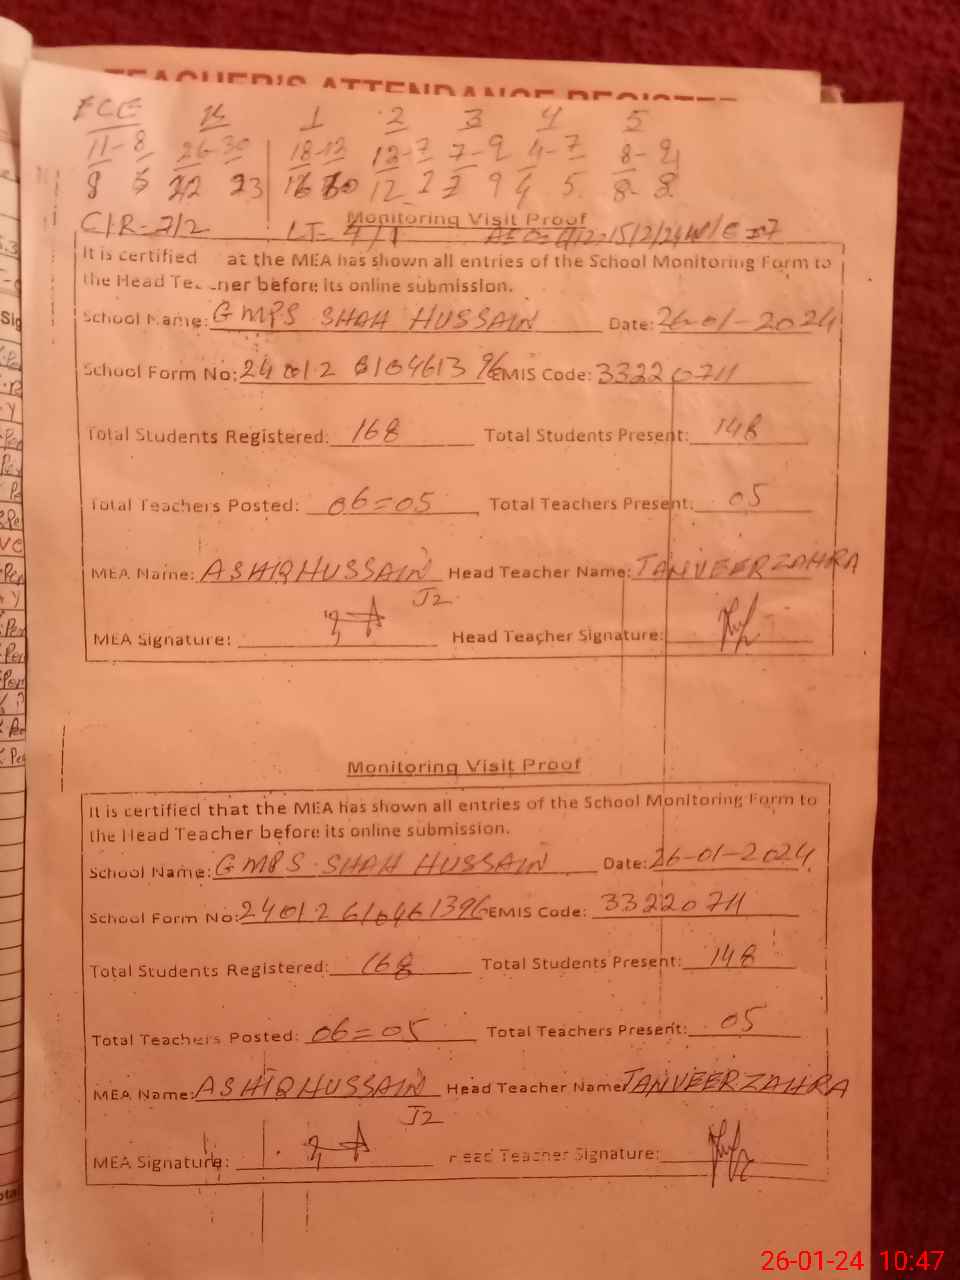 TEACHER'S ATTENDANCE REGISTER
ECE K 1 2 3 4 5
11-8 26-30 18-12 12-7 7-9 4-7 8-9
22 23 12 9 4 5 8- 8
C/R=7/2
Monitoring Visit Proof
It is certified at the MEA has shown all entries of the School Monitoring Form to
the Head before its online submission.
School Name: GMPS SHAH HUSSAIN Date: 26-01-2024
School Form No: EMIS Code: 33220711
Total Students Registered: 168 Total Students Present: 148
Total Teachers Posted: 06=05 Total Teachers Present: 05
MEA Name: ASHIQ HUSSAIN Head Teacher Name: TANVEER ZAHRA
J2
MEA Signature: Head Teacher Signature:
Monitoring Visit Proof
It is certified that the MEA has shown all entries of the School Monitoring Form to
the Head Teacher before its online submission.
School Name: GMPS SHAH HUSSAIN Date: 26-01-2024
School Form No: EMIS Code: 33220711
Total Students Registered: 168 Total Students Present: 148
Total Teachers Posted: 06=05 Total Teachers Present: 05
MEA Name: ASHIQ HUSSAIN Head Teacher Name TANVEER ZAHRA
J2
MEA Signature: Head Teacher Signature:
26-01-24 10:47